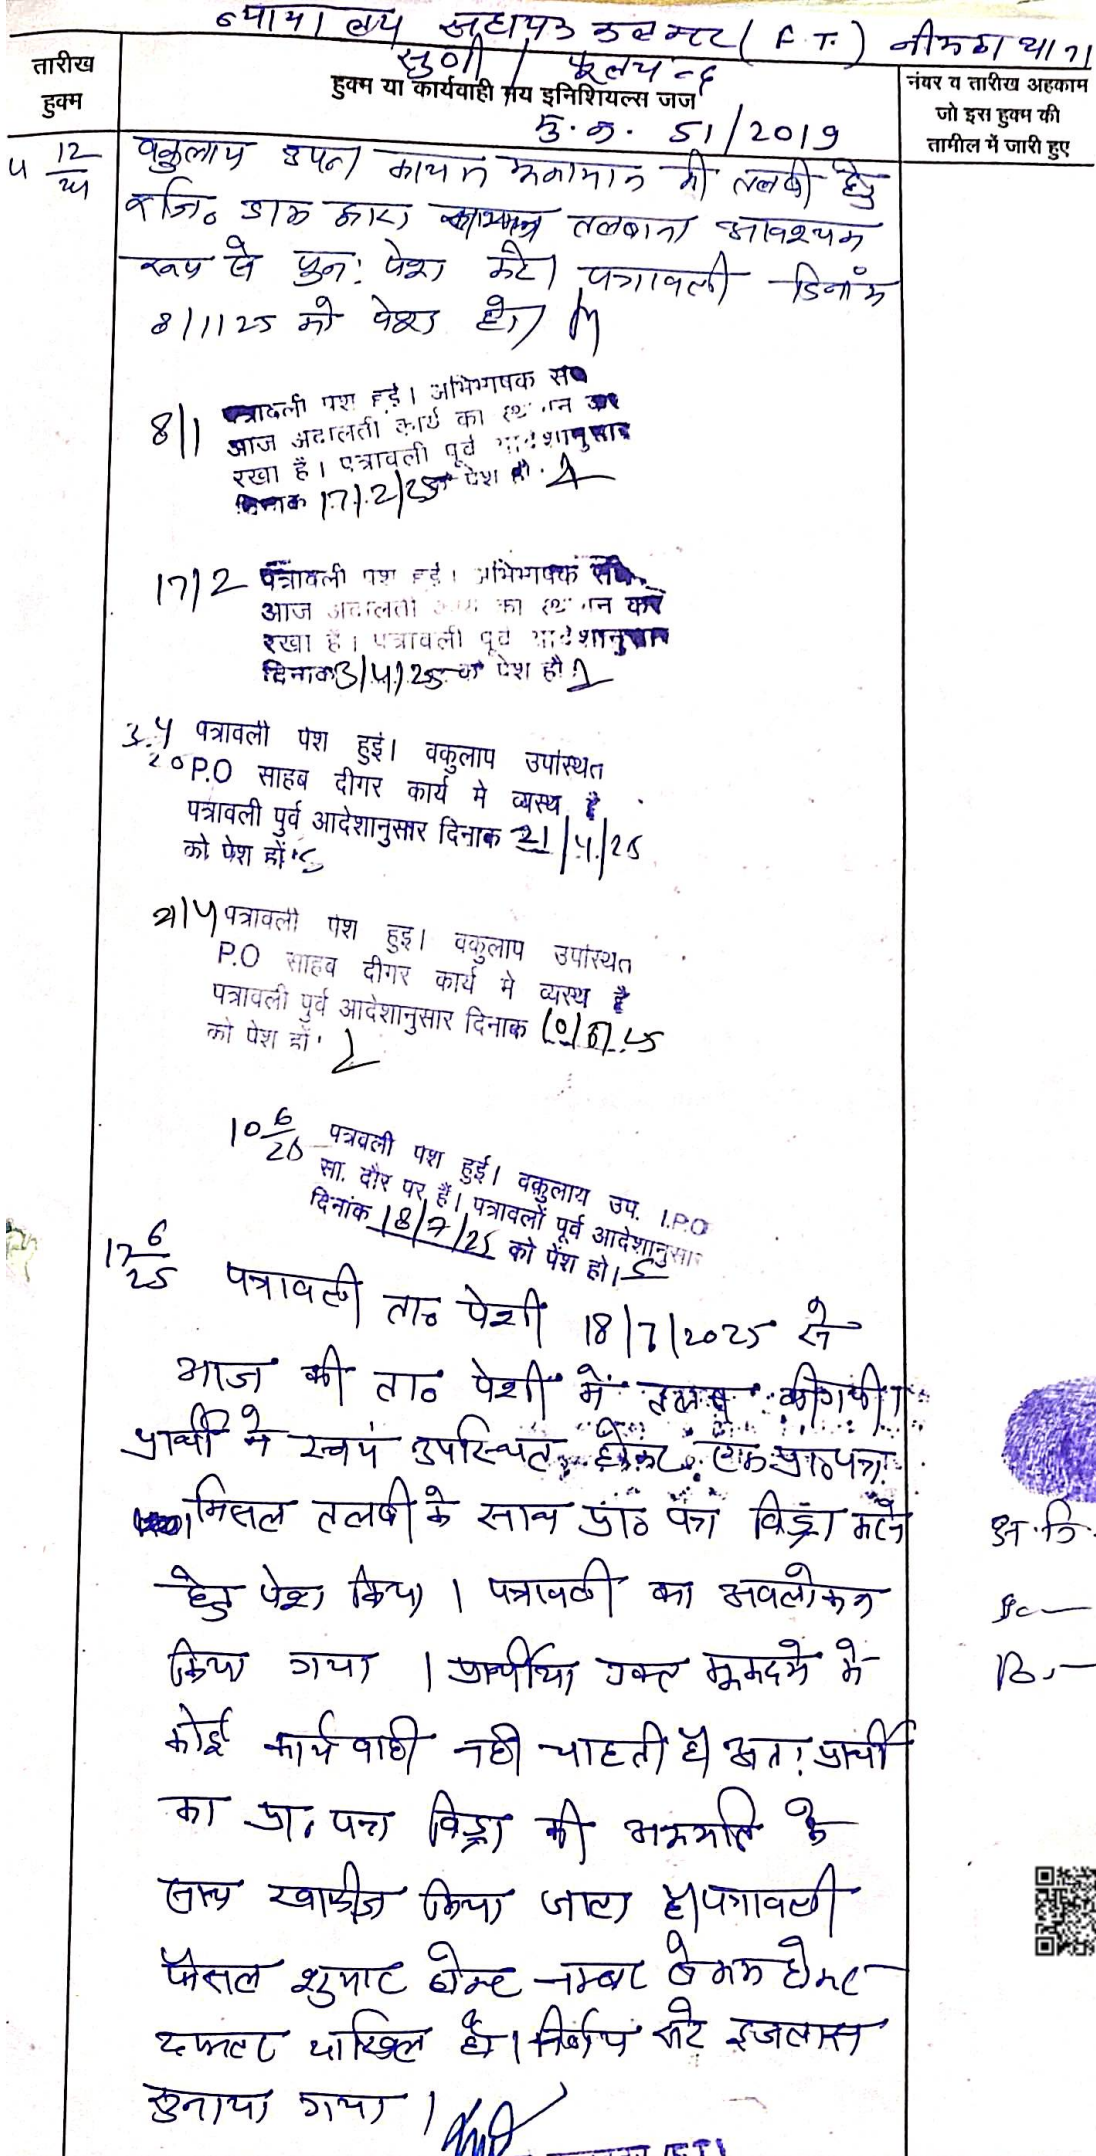 न्यायालय सहायक कलक्टर (F.T.) नीमकाथाना
सुणी / फूलचन्द
तारीख
हुक्म
हुक्म या कार्यवाही मय इनिशियल्स जज
नंबर व तारीख अहकाम
जो इस हुक्म की
तामील में जारी हुए
मु. न. 51/2019
4 12/24
वकुलाय उपन की तलबी हेतु
रजि० डाक द्वारा तलबाना आवश्यक
रूप से पुनः पेश करे। पत्रावली दिनांक
8/1/25 को पेश हो।
8/1 पत्रावली पेश हुई। अभिभाषक संघ
आज अदालती कार्य का स्थगन कर
रखा है। पत्रावली पूर्व आदेशानुसार
दिनांक 17/2/25 को पेश हो
17/2 पत्रावली पेश हुई। अभिभाषक संघ
आज अदालती का स्थगन कर
रखा है। पत्रावली पूर्व आदेशानुसार
दिनाक 3/4/25 को पेश हो
3.4 पत्रावली पेश हुई। वकुलाप उपस्थित
P.O साहब दीगर कार्य मे व्यस्थ है
पत्रावली पुर्व आदेशानुसार दिनाक 21/4/25
को पेश हों
21/4 पत्रावली पेश हुइ। वकुलाप उपस्थित
P.O साहब दीगर कार्य मे व्यस्थ है
पत्रावली पुर्व आदेशानुसार दिनाक 10/6/25
को पेश हों
10 6/25 पत्रवली पेश हुई। वकुलाय उप. I.P.O
सा. दौर पर हैं। पत्रावलों पूर्व आदेशानुसार
दिनांक 18/7/25 को पेंश हो।
17 6/25 पत्रावली ता० पेशी 18/7/2025 से
आज की ता० पेशी में तलब की गयी।
प्रार्थी ने स्वयं उपस्थित होकर एक प्रा० पत्र
मिसल तलबी के साथ प्रा० पत्र विड्रा करने
हेतु पेश किया। पत्रावली का अवलोकन
किया गया। प्रार्थीया उक्त मुकदमे मे
कोई कार्यवाही नही चाहती है। अतः प्रार्थी
का प्रा. पत्र विड्रा की अनुमति के
साथ खारीज किया जाता है। पत्रावली
फैसल शुमार होकर नम्बर से कम होकर
दफतर दाखिल हो। निर्णय सरे इजलास
सुनाया गया।
अ. नि.